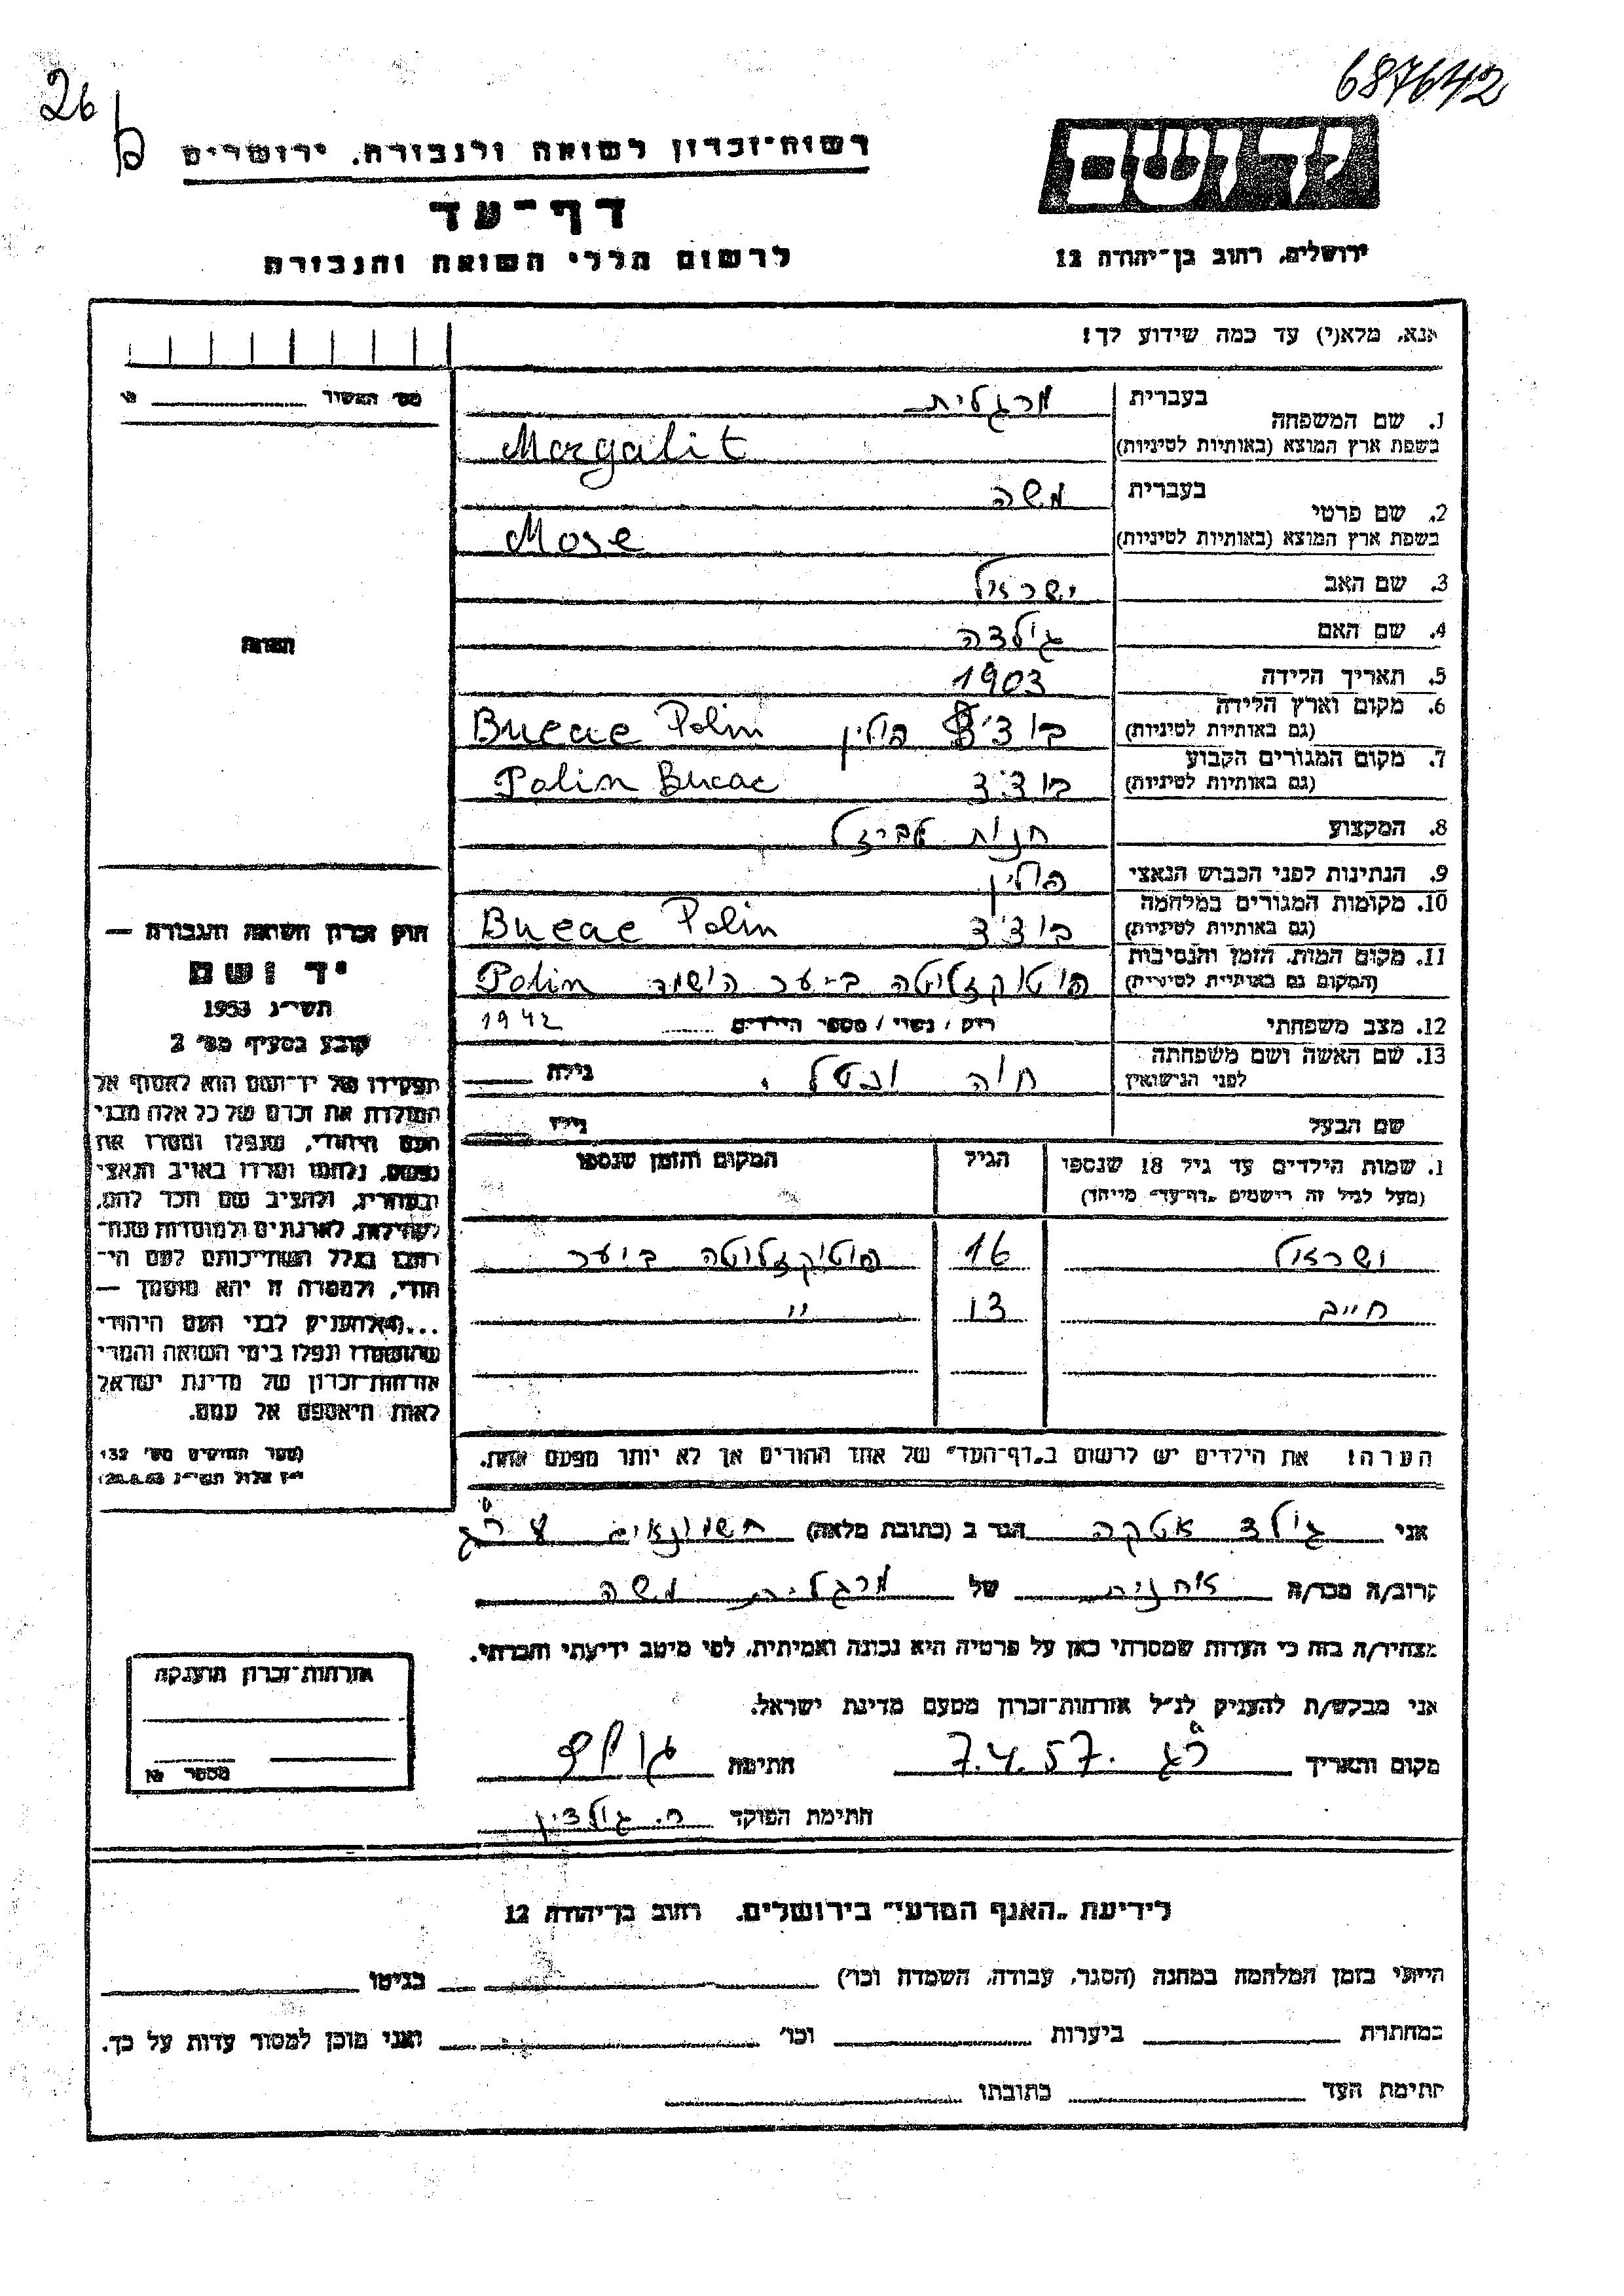 26
687642
רשות־זכרון לשואה ולגבורה, ירושלים
יד ושם
דף־עד
לרשום חללי השואה והגבורה
ירושלים, רחוב בן־יהודה 12
אנא, מלא(י) עד כמה שידוע לך!
מס' האשור
1. שם המשפחה
בעברית מרגלית
בשפת ארץ המוצא (באותיות לטיניות) Morgalit
2. שם פרטי
בעברית משה
בשפת ארץ המוצא (באותיות לטיניות) Mose
3. שם האב ישראל
4. שם האם גולדה
5. תאריך הלידה 1903
6. מקום וארץ הלידה
(גם באותיות לטיניות) פולין Bucac Polin
7. מקום המגורים הקבוע
(גם באותיות לטיניות) בוצ'צ' Polin Bucac
8. המקצוע חנות
9. הנתינות לפני הכבוש הנאצי פולין
10. מקומות המגורים במלחמה
(גם באותיות לטיניות) בוצ'צ' Bucac Polin
11. מקום המות, הזמן והנסיבות
(המקום גם באותיות לטיניות) ביער Polin
12. מצב משפחתי רוק / נשוי / מספר הילדים 1942
13. שם האשה ושם משפחתה
לפני הנישואין חוה גילה
שם הבעל גילו
הערות
1. שמות הילדים עד גיל 18 שנספו
(מעל לגיל זה רישמים „דף־עד" מיוחד)
הגיל
המקום והזמן שנספו
ישראל 16 ביער
חייב 13 "
הערה! את הילדים יש לרשום ב„דף־העד" של אחד ההורים אך לא יותר מפעם אחת.
חוק זכרון השואה והגבורה —
יד ושם
תשי"ג 1953
קובע בסעיף מס' 2
תפקידו של יד־ושם הוא לאסוף אל
המולדת את זכרם של כל אלה מבני
העם היהודי, שנפלו ומסרו את
נפשם, נלחמו ומרדו באויב הנאצי
ובעוזריו, ולהציב שם וזכר להם,
לקהילות, לארגונים ולמוסדות שנח־
רבו בגלל השתייכותם לעם הי־
הודי, ולמטרה זו יהא מוסמך —
...(4) להעניק לבני העם היהודי
שהושמדו ונפלו בימי השואה והמרי
אזרחות־זכרון של מדינת ישראל
לאות היאספם אל עמם.
(ספר החוקים מס' 132
י"ז אלול תשי"ג 28.8.53)
אני גולד אטקה הגר ב (כתובת מלאה)
קרוב/ה מכר/ה אחנית של מרגלית משה
מצהיר/ה בזה כי העדות שמסרתי כאן על פרטיה היא נכונה ואמיתית, לפי מיטב ידיעתי והכרתי.
אני מבקש/ת להעניק לנ"ל אזרחות־זכרון מטעם מדינת ישראל.
מקום ותאריך ר"ג 7.4.57. חתימה
חתימת הפוקד
אזרחות־זכרון הוענקה
מספר №
לידיעת „האגף המדעי" בירושלים, רחוב בן־יהודה 12
הייתי בזמן המלחמה במחנה (הסגר, עבודה, השמדה וכו') בגיטו
במחתרת ביערות וכו' ואני מוכן למסור עדות על כך.
חתימת העד כתובתו